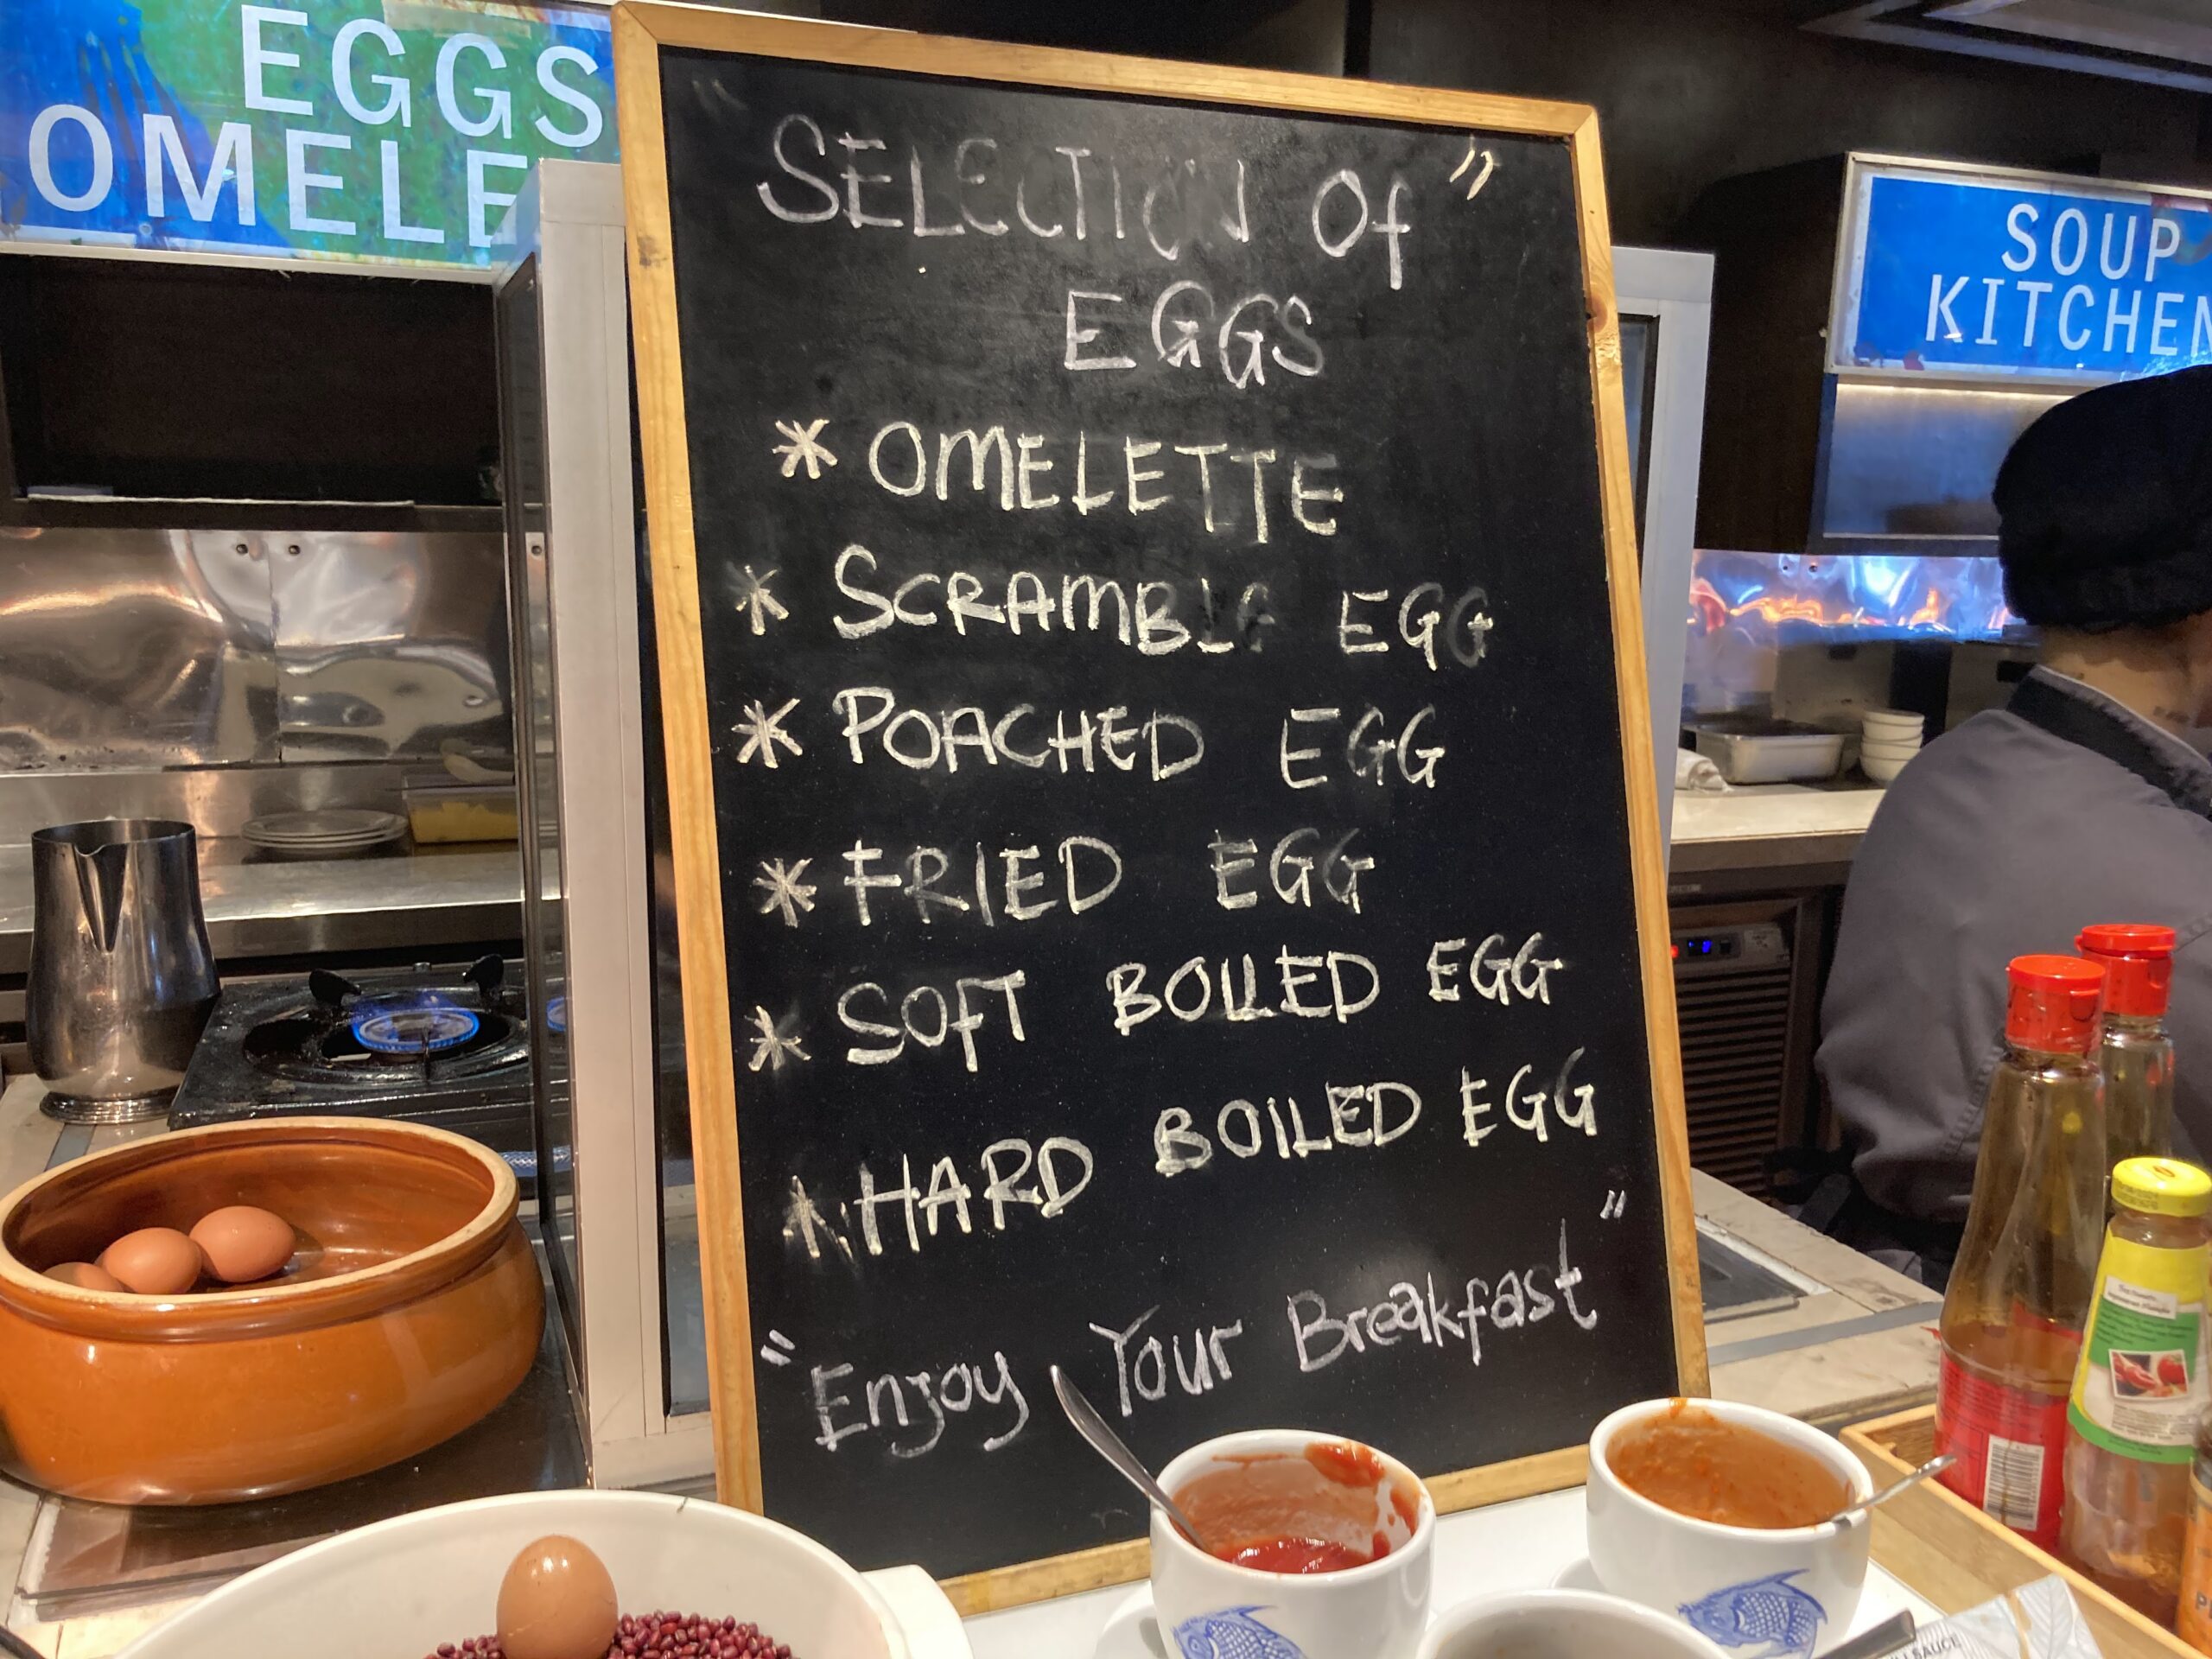 EGGS
OMELE
SOUP
KITCHEN
" SELECTION Of "
EGGS
* OMELETTE
* SCRAMBLE EGG
* POACHED EGG
* FRIED EGG
* SOFT BOILED EGG
* HARD BOILED EGG
"Enjoy Your Breakfast"
SAUCE